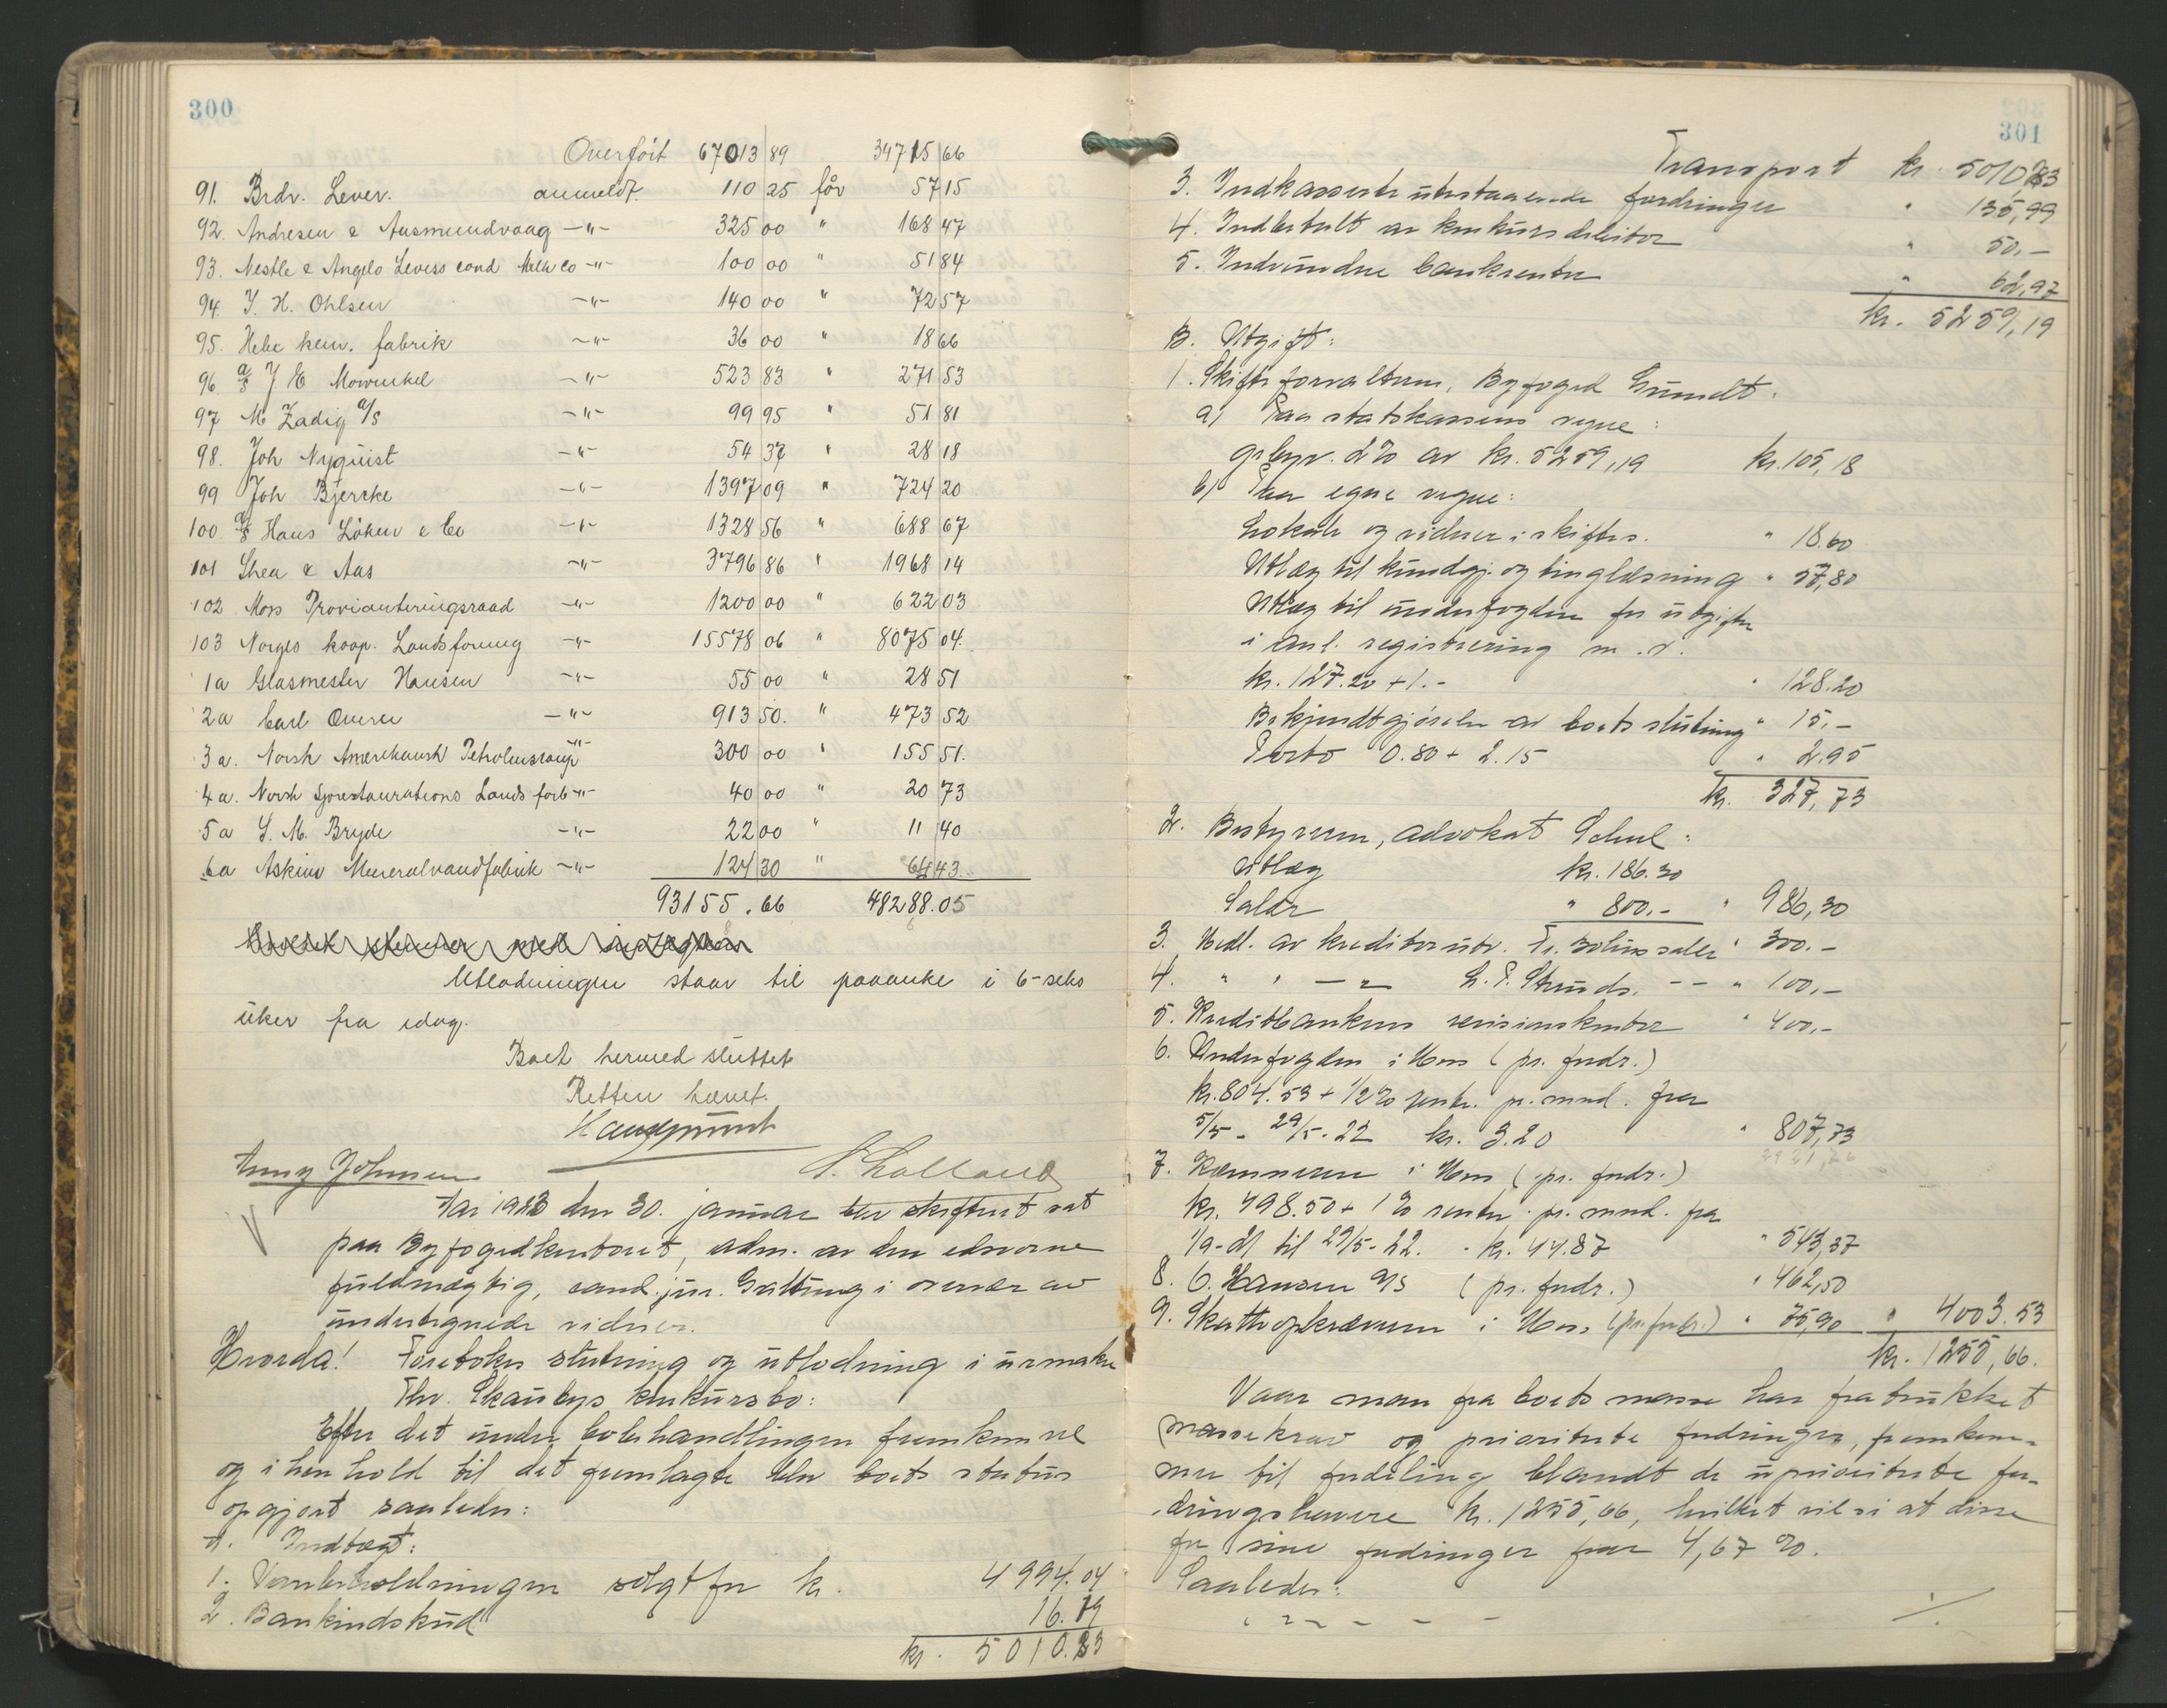 300
Overført 67013 89 34715 66
91. Brdr. Lever. anmeldt. 110 25 får 57 15
92. Andresen & Aasmundvaag -"- 325 00 " 168 47
93. Nestle & Angelo Swiss cond Milk Co -"- 100 00 " 51 84
94 J. H. Ohlsen -"- 140 00 " 72 57
95. Hebe kem. fabrik -"- 36 00 " 18 66
96 a/s J E Mowinkel -"- 523 83 " 271 53
97 M Zadig a/s -"- 99 95 " 51 81
98. Joh Nyquist -"- 54 37 " 28 18
99 Joh Bjercke -"- 1397 09 " 724 20
100. a/s Hans Löken & Co -"- 1328 56 " 688 67
101 Shea & Aas -"- 3796 86 " 1968 14
102 Moss Provianteringsraad -"- 1200 00 " 622 03
103 Norges koop. Landsforening -"- 15578 06 " 8075 04.
1a Glasmester Hansen -"- 55 00 " 28 51
2a Carl Overen -"- 913 50. " 473 52
3a. Norsk Amerikansk Petroleumscomp -"- 300 00 " 155 51.
4a. Norsk Sjorestaurations Lands forb -"- 40 00 " 20 73
5a S. M. Bryde -"- 22 00 " 11 40
6a Askim Mineralvandfabrik -"- 124 30 " 64 43
93155.66 48288.05
Utlodningen staar til paaanke i 6-seks
uker fra idag.
Boet hermed sluttet
Retten hævet.
Haugmundt
Anny Johnsen S. Lolland
Aar 1923 den 30. januar blev skifteret sat
paa Byfogedkontoret, adm. av den edsvorne
fuldmægtig, cand. jur. Galtung i overvær av
undertegnede vidner.
Hvorda! Foretokes slutning og utlodning i urmaker
Thv. Skaubys konkursbo:
Efter det under bobehandlingen fremkomne
og i henhold til det fremlagte blev boets status
opgjort saaledes:
A. Indtægt:
1. Varebeholdningen solgt for kr. 4994.04
2. Bankindskud 16.19
kr. 5010.23
301
Transport kr. 5010,23
3. Indkasserte utestaaende fordringer " 135,99
4. Indbetalt av konkursdebitor " 50.-
5. Indvundne bankrenter " 62,97
kr. 5259,19
B. Utgift:
1. Skifteforvalteren, Byfoged Grundt.
a) Paa statskassens regne:
gebyr. 2% av kr. 5259,19 kr. 105,18
b) Paa egne regne:
Lokale og vidner i skiftes. " 18.60
Utlæg til kundgj. og tinglæsning " 57,80
Utlæg til underfogden for utgifter
i anl. registrering m.v.
kr. 127.20 + 1.- " 128.20
Bekjendtgjørelse av boets slutning " 15.-
Porto 0.80 + 2.15 " 2.95
kr. 327,73
2. Bestyreren, advokat Schul:
Utlæg kr. 186.30
Salær " 800.- " 986,30
3. Medl. av kreditorutv. Fr. salær " 300.-
4. " " - " - L. P. Strunds. - - " 100,-
5. Kreditbankens revisionskontor " 400,-
6. Underfogden i Moss (pr. fordr.)
kr. 804.53 + 1/2% rente. pr. mnd. fra
5/5 - 29/5-22 kr. 3.20 " 807,73
7. Kæmneren i Moss (pr. fordr.)
kr. 498.50 + 1% rente. pr. mnd. fra
1/9-21 til 29/5-22. - kr. 44.87 " 543,37
8. C. Hansen A/S (pr. fordr.) " 462,50
9. Skatteopkræveren i Moss (pr. fordr.) " 75,90 " 4003.53
kr. 1255,66.
Naar man fra boets masse har fratrukket
massekrav og prioriterte fordringer, fremkom-
mer til fordeling blandt de uprioriterte for-
dringshavere kr. 1255,66, hvilket vil si at disse
for sine fordringer faar 4,67 %.
Saaledes: